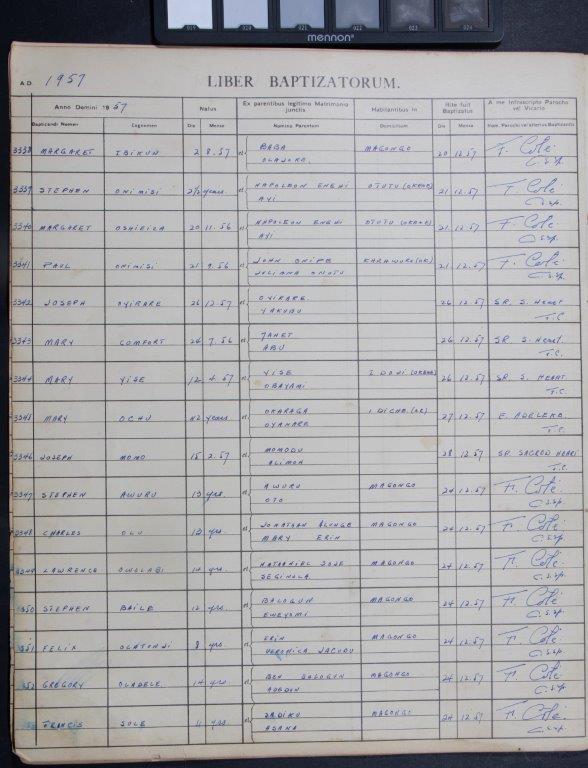 019
mennon
A.D. 1957
LIBER BAPTIZATORUM.
Anno Domini 1957 Natus Ex parentibus legitimo Matrimonio junctis Habitantibus in Rite fuit Baptizatus A me Infrascripto Parocho vel Vicario
Baptizandi Nomen Cognomen Die Mense Nomina Parentum Domicilium Die Mense Nom. Parochi vel alterius Baptizantis
3338 MARGARET IBIKUN 2 8.57 et BABA MAGONGO 20 12.57 F. Coté
OLAJOKE C.S.Sp.
3339 STEPHEN ONIMISI 2½ years et NAPOLEON ENEHI OTUTU (OKENE) 21 12.57 F. Coté
AYI C.S.Sp.
3340 MARGARET OSHIEIZA 20 11.56 et NAPOLEON ENEHI OTUTU (OKENE) 21 12.57 F. Coté
AYI C.S.Sp.
3341 PAUL ONIMISI 21 9.56 et JOHN ONIPE KARAWURE (OK) 21 12.57 F. Coté
JULIANA ONUTU C.S.Sp.
3342 JOSEPH OYIRARE 26 12.57 et OYIRARE 26 12.57 SR. S. Heart
YAKUBU T.C.
3343 MARY COMFORT 24 7.56 et JANET 26 12.57 SR S. Heart
ABU T.C.
3344 MARY YISE 12 4.57 et YISE 26 12.57 SR. S. HEART
OBAYAMI T.C.
3345 MARY OCHU 42 years et OKARAGA IDICHE (OK) 27 12.57 E. ADELEKE
OYAKARE T.C.
3346 JOSEPH MOMO 15 2.57 et MOMODU 28 12.57 SR SACRED HEART
ALIMOH T.C.
3347 STEPHEN AWURU 13 yrs. et AWURU MAGONGO 24 12.57 F. Coté
OTO C.S.Sp.
3348 CHARLES OLU 12 yrs. et JONATHAN ALONGE MAGONGO 24 12.57 F. Coté
MARY ERIN C.S.Sp.
3349 LAWRENCE OWOLABI 14 yrs. et NATHANIEL SOJE MAGONGO 24 12.57 F. Coté
SEGINOLA C.S.Sp.
3350 STEPHEN BAILE 12 yrs. et BALOGUN MAGONGO 24 12.57 F. Coté
EWEYEMI C.S.Sp.
3351 FELIX OLATONJI 8 yrs. et ERIN MAGONGO 24 12.57 F. Coté
VERONICA JACUDU C.S.Sp.
3352 GREGORY OLADELE 14 yrs et BEN BALOGUN MAGONGO 24 12.57 F. Coté
C.S.Sp.
FRANCIS SOLE 11 yrs et SADIKU MAGONGO 24 12.57 F. Coté
ASANA C.S.Sp.